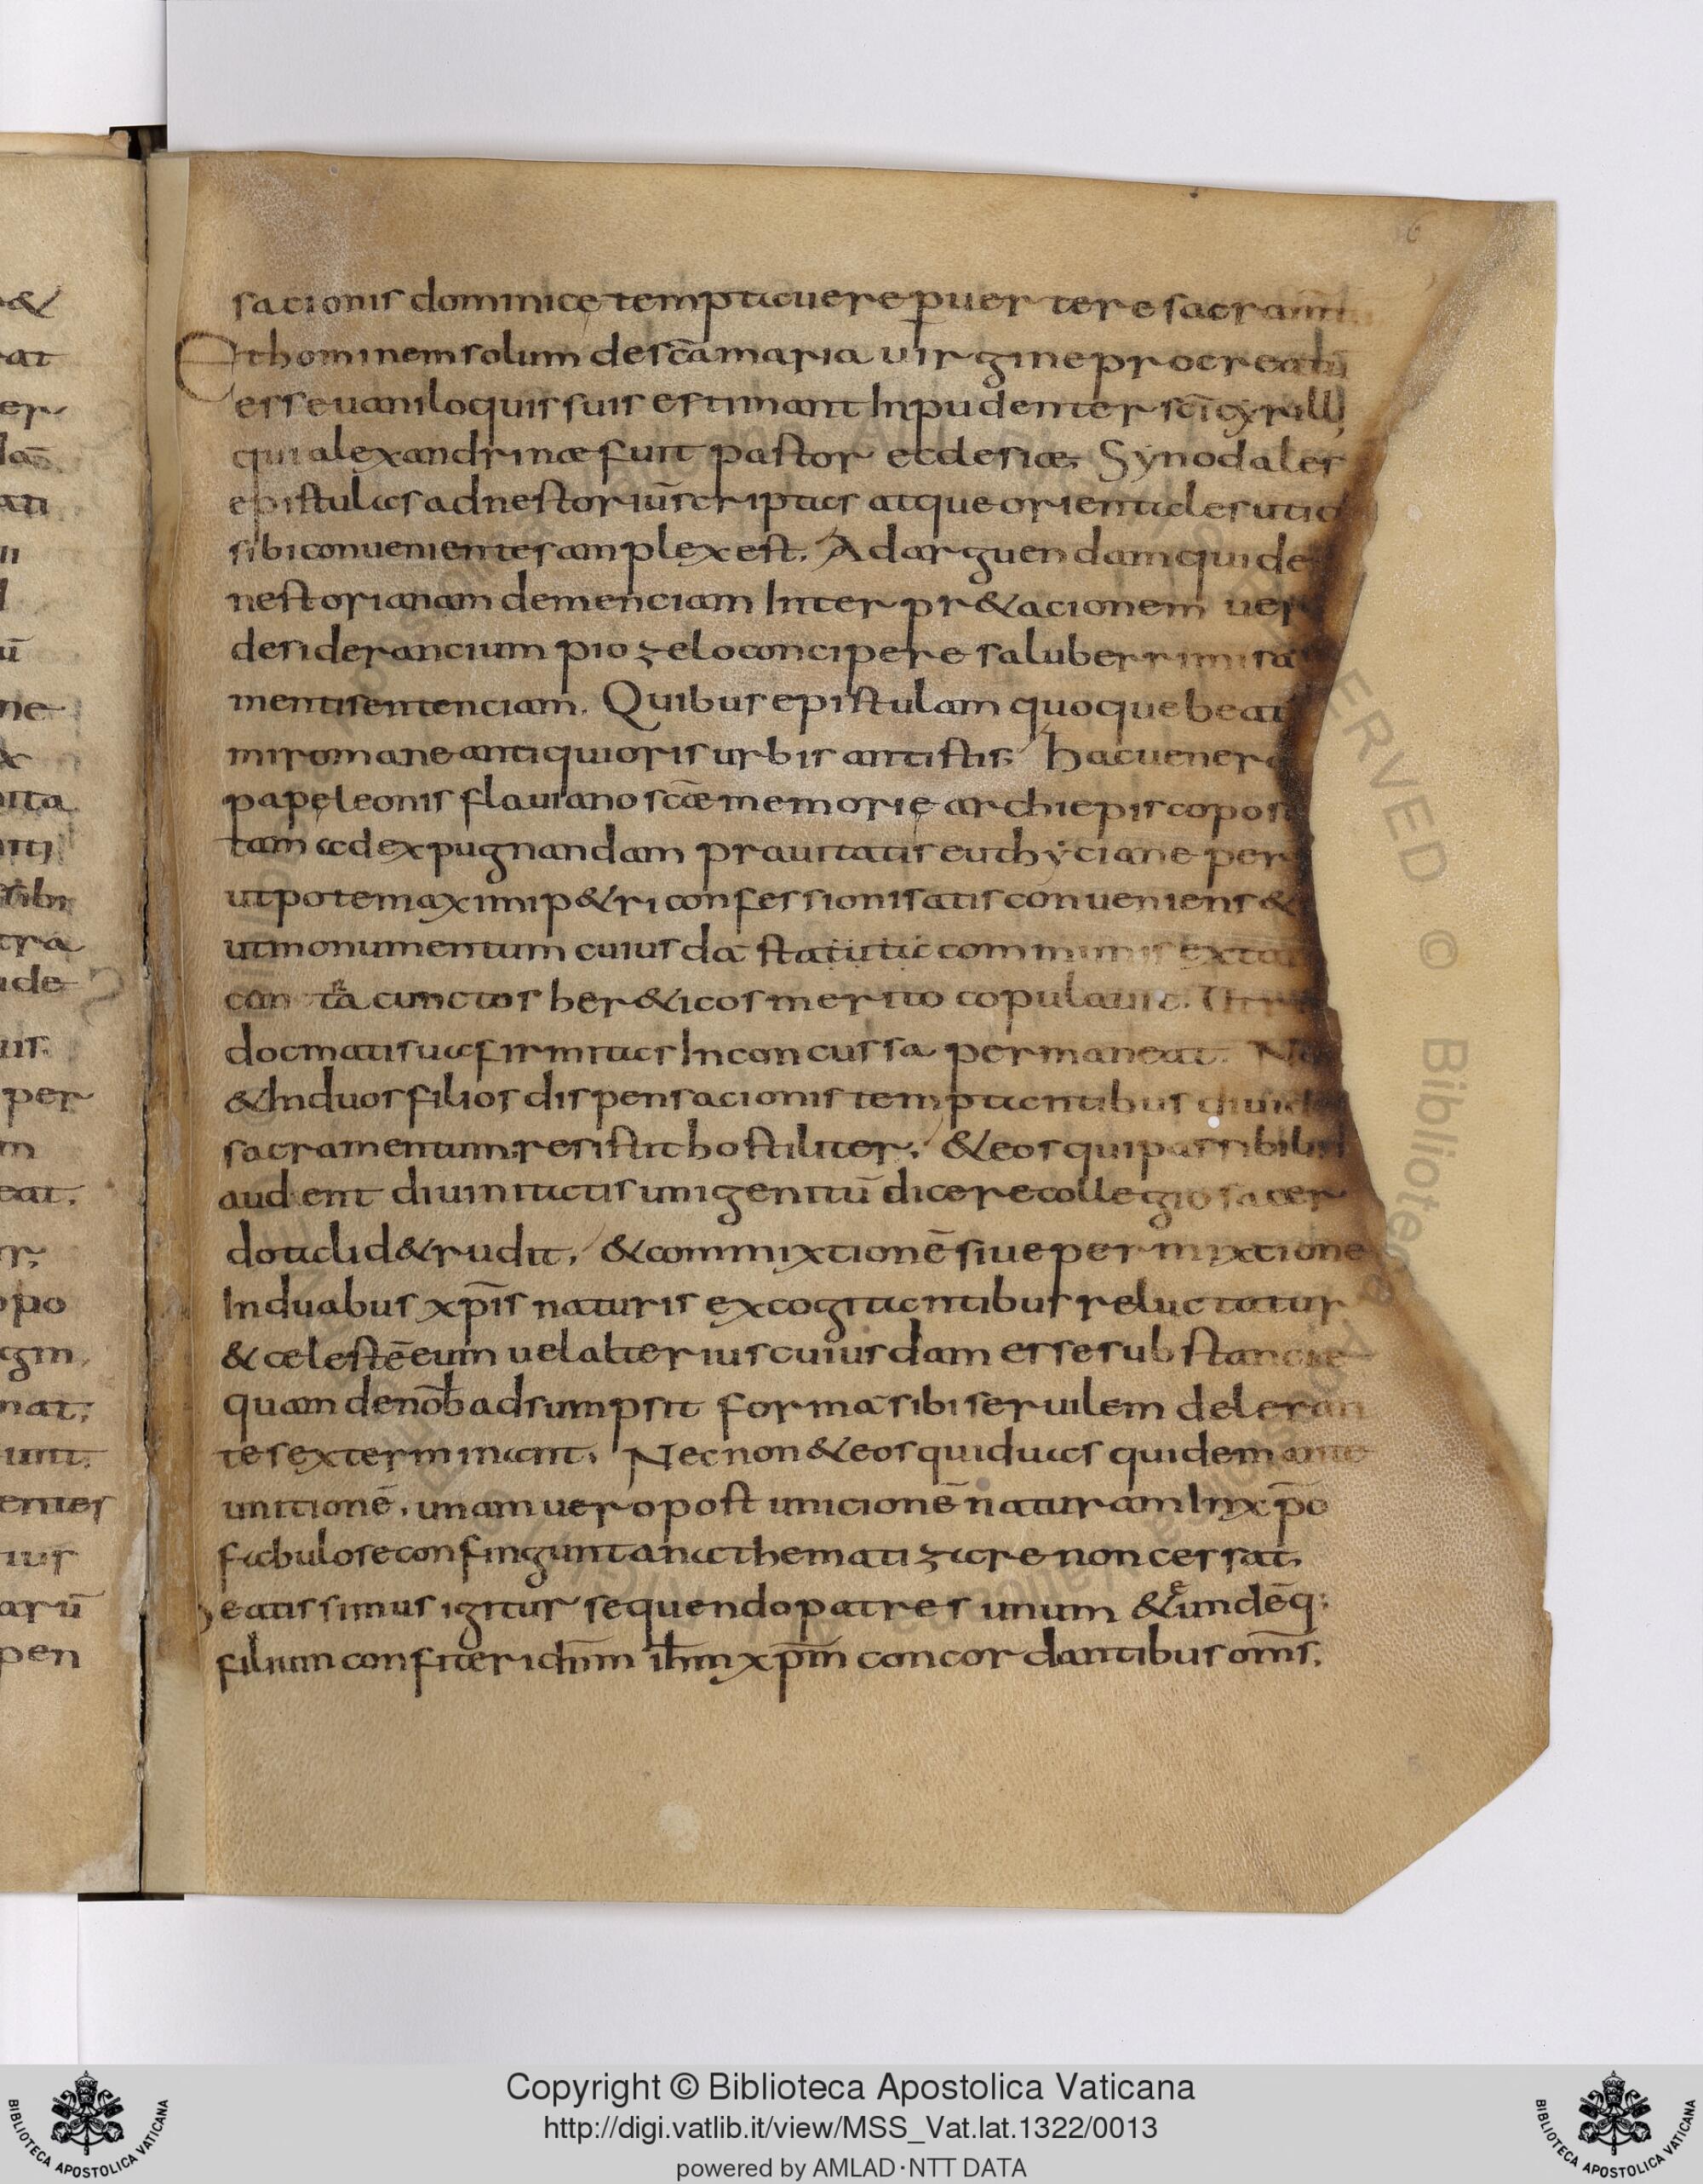 sacionis dominicę temptauere peruertere sacram̅
Et hominem solum de sc̅a maria uirgine procreatu̅
esse uaniloquis suis estimant Inpudenter sc̅i cyrilli
qui alexandrinæ fuit pastor ecclesiæ. Synodales
epistulas ad nestoriu̅ scriptas atque orientales
sibi conuenientes amplex est. Ad arguendam quide
nestorianam demenciam Interpr&acionem
desiderancium pio zelo concipere saluberrimi
mentis entenciam. Quibus epistulam quoque
mi romane antiquioris urbis antistis. hac
papę leonis flauiano sc̅æ memorię archiepiscopo
tam ad expugnandam prauitatis euthyciane
utpote maximi p&ri confessioni satis conueniens &
ut monumentum cuiusda̅ statuta communis
contra cunctos her&icos merito copulauit.
docmatis ua firmitas Inconcussa permaneat.
& In duos filios dispensacionis temptantibus
sacramentum; resistit hostiliter. & eos qui passibile
audent diuinitatis unigenitu̅ dicere collegio sacer
dotali d&rudit. & commixtione̅ siue permixtione
In duabus xp̅is naturis excogitantibus reluctatur
& celeste̅ eum uel alterius cuiusdam esse substancie
quam de nob̅ adsumpsit forma̅ sibi seruilem deleran
tes exterminant. Nec non & eos qui duas quidem ante
unitione̅. unam uero post unicione̅ naturam In xp̅o
fabulose confingunt anathematizare non cessat.
Beatissimus igitur sequendo patres unum & eunde̅q;
filium confiteri dn̅m ih̅m xp̅m concordantibus om̅s.
6
Copyright © Biblioteca Apostolica Vaticana
http://digi.vatlib.it/view/MSS_Vat.lat.1322/0013
powered by AMLAD·NTT DATA
BIBLIOTECA APOSTOLICA VATICANA
BIBLIOTECA APOSTOLICA VATICANA